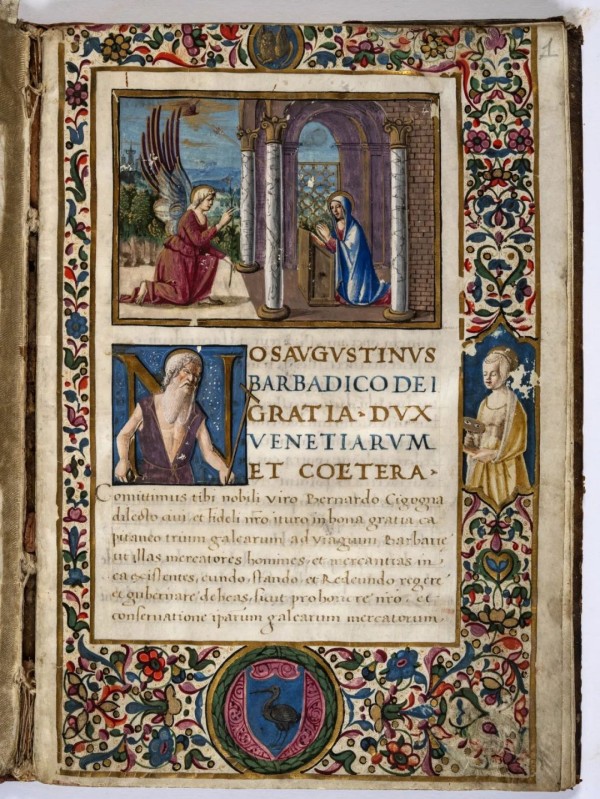 1
NOS AVGVSTINVS
BARBADICO DEI
GRATIA · DVX
VENETIARVM
ET COETERA ·
Comittimus tibi nobili viro Bernardo Cigogna
dilecto ciui et fideli nr̃o ituro in bona gratia ca
pitaneo trium galearum ad viagium Barbarie
ut illas mercatores homines, et mercantias in
ea existentes, eundo, stando, et Redeundo regere
et gubernare debeas, sicut pro honore nr̃o, et
conseruatione ip̃arum galearum mercatorum